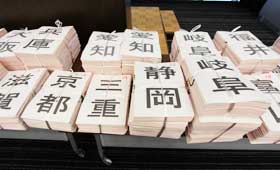 大阪
兵庫
愛知
愛知
岐阜
福井
滋賀
京都
三重
静岡
岐阜